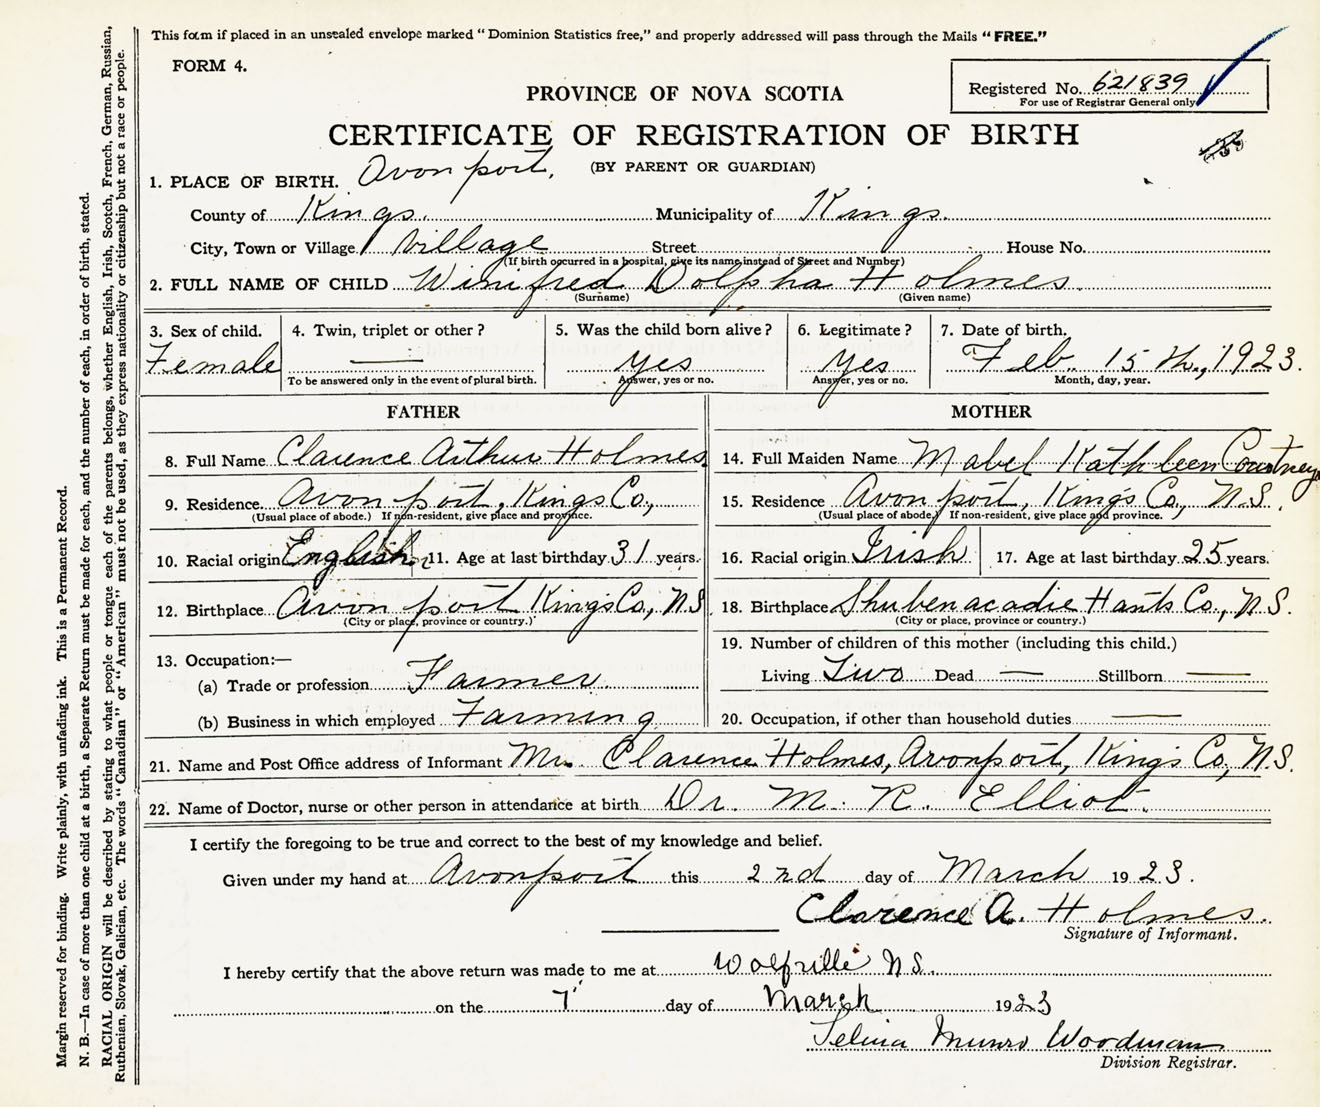 This form if placed in an unsealed envelope marked "Dominion Statistics free," and properly addressed will pass through the Mails "FREE."
FORM 4.
Registered No. 621839
For use of Registrar General only
PROVINCE OF NOVA SCOTIA
CERTIFICATE OF REGISTRATION OF BIRTH
(BY PARENT OR GUARDIAN)
1. PLACE OF BIRTH. Avonport.
County of Kings. Municipality of Kings.
City, Town or Village Village Street House No.
(If birth occurred in a hospital, give its name instead of Street and Number)
2. FULL NAME OF CHILD Winifred Dolpha Holmes.
(Surname) (Given name)
3. Sex of child. 4. Twin, triplet or other? 5. Was the child born alive? 6. Legitimate? 7. Date of birth.
Female — Yes Yes Feb. 15th, 1923.
To be answered only in the event of plural birth. Answer, yes or no. Answer, yes or no. Month, day, year.
FATHER MOTHER
8. Full Name Clarence Arthur Holmes 14. Full Maiden Name Mabel Kathleen Courtney
9. Residence. Avonport, Kings Co., 15. Residence Avonport, King's Co., N.S.
(Usual place of abode.) If non-resident, give place and province. (Usual place of abode.) If non-resident, give place and province.
10. Racial origin English 11. Age at last birthday 31 years. 16. Racial origin Irish 17. Age at last birthday 25 years.
12. Birthplace Avonport King's Co., N.S. 18. Birthplace Shubenacadie Hants Co., N.S.
(City or place, province or country.) (City or place, province or country.)
13. Occupation:— 19. Number of children of this mother (including this child.)
(a) Trade or profession Farmer. Living Two Dead — Stillborn —
(b) Business in which employed Farming 20. Occupation, if other than household duties —
21. Name and Post Office address of Informant Mr. Clarence Holmes, Avonport, King's Co., N.S.
22. Name of Doctor, nurse or other person in attendance at birth Dr. M. R. Elliot.
I certify the foregoing to be true and correct to the best of my knowledge and belief.
Given under my hand at Avonport this 2nd day of March 1923.
Clarence A. Holmes.
Signature of Informant.
I hereby certify that the above return was made to me at Wolfville N.S.
on the 7 day of March 1923
Selina Munro Woodman
Division Registrar.
Margin reserved for binding. Write plainly, with unfading ink. This is a Permanent Record.
N. B.—In case of more than one child at a birth, a Separate Return must be made for each, and the number of each, in order of birth, stated.
RACIAL ORIGIN will be described by stating to what people or tongue each of the parents belongs, whether English, Irish, Scotch, French, German, Russian,
Ruthenian, Slovak, Galician, etc. The words "Canadian" or "American" must not be used, as they express nationality or citizenship but not a race or people.